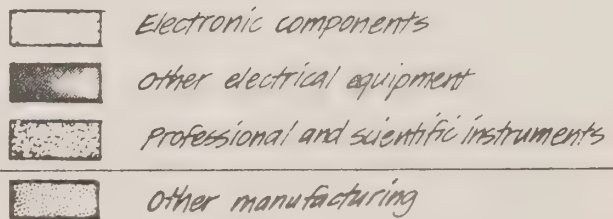 Electronic components
Other electrical equipment
Professional and scientific instruments
Other manufacturing